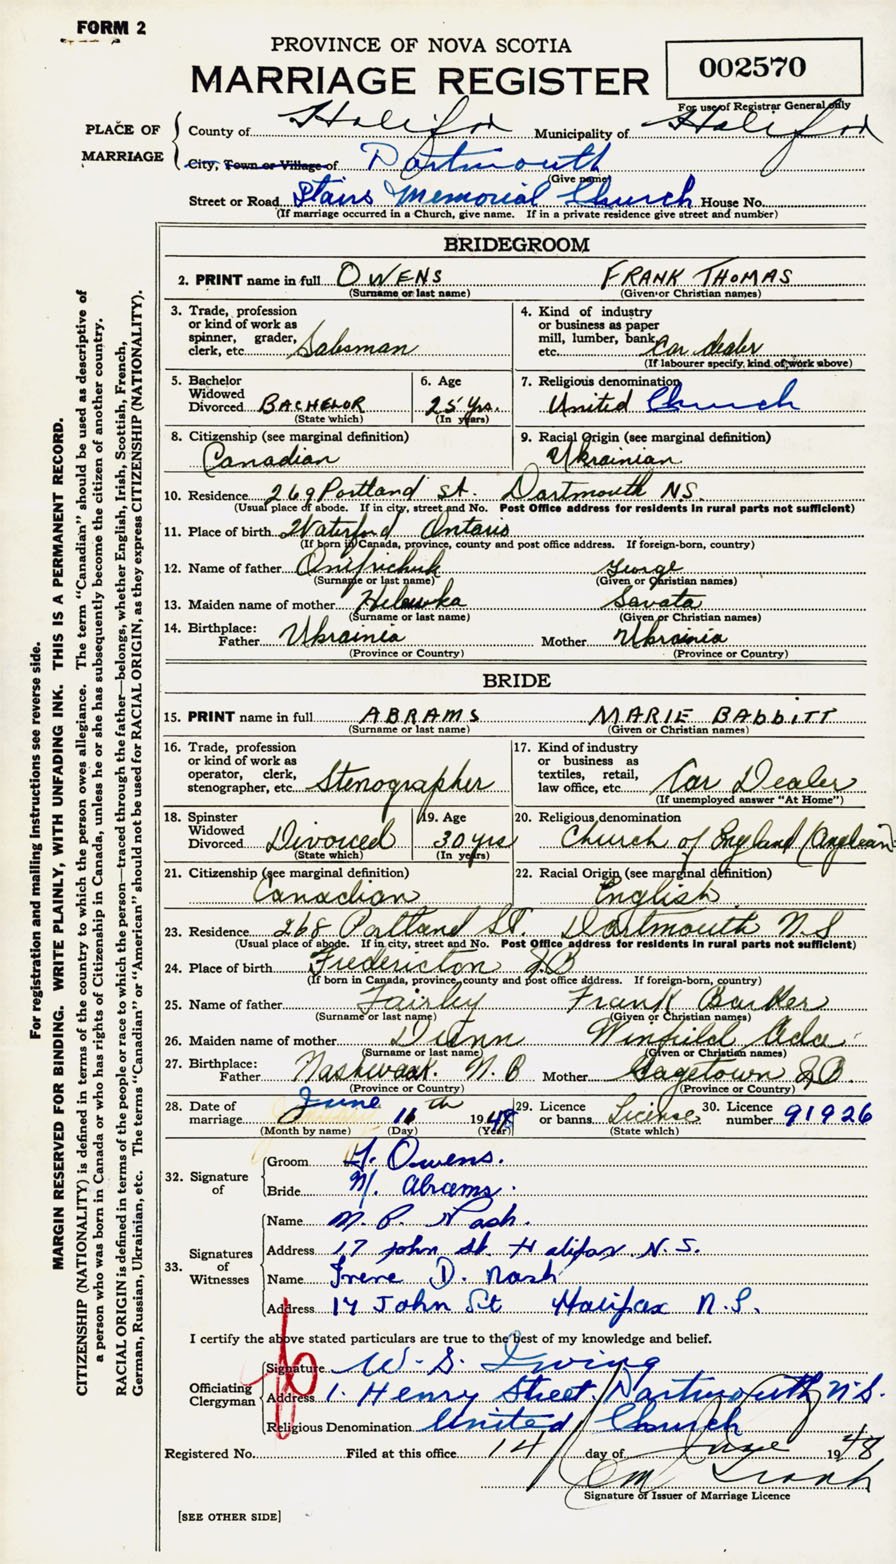 FORM 2
PROVINCE OF NOVA SCOTIA
MARRIAGE REGISTER
002570
For use of Registrar General only
PLACE OF MARRIAGE
County of Halifax Municipality of Halifax
City, Town or Village of Dartmouth
(Give name)
Street or Road Stairs Memorial Church House No.
(If marriage occurred in a Church, give name. If in a private residence give street and number)
BRIDEGROOM
2. PRINT name in full OWENS FRANK THOMAS
(Surname or last name) (Given or Christian names)
3. Trade, profession or kind of work as spinner, grader, clerk, etc. Salesman
4. Kind of industry or business as paper mill, lumber, bank, etc. Car dealer
(If labourer specify, kind of work above)
5. Bachelor Widowed Divorced BACHELOR
(State which)
6. Age 25 Yrs.
(In years)
7. Religious denomination United Church
8. Citizenship (see marginal definition) Canadian
9. Racial Origin (see marginal definition) Ukrainian
10. Residence 269 Portland St. Dartmouth N.S.
(Usual place of abode. If in city, street and No. Post Office address for residents in rural parts not sufficient)
11. Place of birth Waterford Ontario
(If born in Canada, province, county and post office address. If foreign-born, country)
12. Name of father Onifrichuk George
(Surname or last name) (Given or Christian names)
13. Maiden name of mother Savata
(Surname or last name) (Given or Christian names)
14. Birthplace: Father Ukrainia Mother Ukrainia
(Province or Country) (Province or Country)
BRIDE
15. PRINT name in full ABRAMS MARIE BABBITT
(Surname or last name) (Given or Christian names)
16. Trade, profession or kind of work as operator, clerk, stenographer, etc. Stenographer
17. Kind of industry or business as textiles, retail, law office, etc. Car Dealer
(If unemployed answer "At Home")
18. Spinster Widowed Divorced Divorced
(State which)
19. Age 30 yrs
(In years)
20. Religious denomination Church of England (Anglican)
21. Citizenship (see marginal definition) Canadian
22. Racial Origin (see marginal definition) English
23. Residence 268 Portland St. Dartmouth N.S
(Usual place of abode. If in city, street and No. Post Office address for residents in rural parts not sufficient)
24. Place of birth Fredericton N.B
(If born in Canada, province, county and post office address. If foreign-born, country)
25. Name of father Fairley Frank Barker
(Surname or last name) (Given or Christian names)
26. Maiden name of mother Dunn Winfield Ada
(Surname or last name) (Given or Christian names)
27. Birthplace: Father Nashwaak. N.B Mother Gagetown N.B.
(Province or Country) (Province or Country)
28. Date of marriage June 16th 1948
(Month by name) (Day) (Year)
29. Licence or banns License
(State which)
30. Licence number 91926
32. Signature of
Groom F. Owens.
Bride M. Abrams.
33. Signatures of Witnesses
Name M. P. Nash.
Address 17 John St. Halifax N.S.
Name Irene D. Nash
Address 17 John St Halifax N.S.
I certify the above stated particulars are true to the best of my knowledge and belief.
Officiating Clergyman
Signature W. S. Irving
Address 1. Henry Street, Dartmouth N.S.
Religious Denomination United Church
Registered No. Filed at this office 14 day of June 1948
Signature of Issuer of Marriage Licence
[SEE OTHER SIDE]
For registration and mailing instructions see reverse side.
MARGIN RESERVED FOR BINDING. WRITE PLAINLY, WITH UNFADING INK. THIS IS A PERMANENT RECORD.
CITIZENSHIP (NATIONALITY) is defined in terms of the country to which the person owes allegiance. The term "Canadian" should be used as descriptive of
a person who was born in Canada or who has rights of Citizenship in Canada, unless he or she has subsequently become the citizen of another country.
RACIAL ORIGIN is defined in terms of the people or race to which the person—traced through the father—belongs, whether English, Irish, Scottish, French,
German, Russian, Ukrainian, etc. The terms "Canadian" or "American" should not be used for RACIAL ORIGIN, as they express CITIZENSHIP (NATIONALITY).